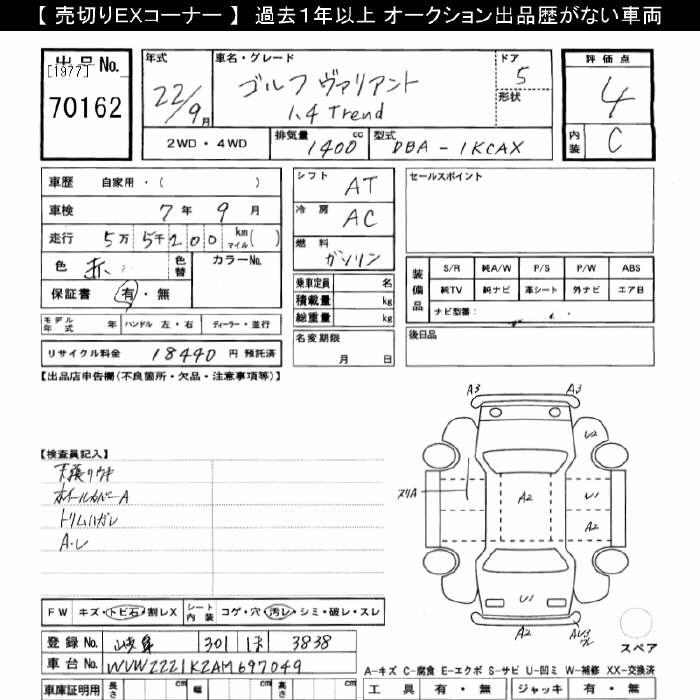 【 売切りEXコーナー 】 過去１年以上 オークション出品歴がない車両
出品 No. [1977] 70162
年式 22/9月
車名・グレード ゴルフ ヴァリアント 1.4 Trend
ドア 5
形状
評価点 4
内装 C
2WD・4WD
排気量 1400 cc
型式 DBA-1KCAX
車歴 自家用・( )
車検 7年 9月
走行 5万 5千200 km マイル( )
色 赤 色替
カラーNo.
保証書 有・無
シフト AT
冷房 AC
燃料 ガソリン
乗車定員 名
積載量 kg
総重量 kg
名変期限 月 日
セールスポイント
装備品 S/R 純A/W P/S P/W ABS
純TV 純ナビ 革シート 外ナビ エア日
ナビ型番:
後日品
モデル年式 年 ハンドル 左・右 ディーラー・並行
リサイクル料金 18440 円 預託済
【出品店申告欄(不良箇所・欠品・注意事項等)】
【検査員記入】
天張りウキ
ホイールカバーA
トリムハガレ
A・U
A3 A3
U2
スリA A2 U1
A2
U1
A2
スペア
FW キズ・トビ石・割レX シート内装 コゲ・穴・汚レ・シミ・破レ・スレ
登録 No. 岐阜 301 ほ 3838
車台 No. WVWZZZ1KZAM697049
A-キズ C-腐食 E-エクボ S-サビ U-凹ミ W-補修 XX-交換済
車庫証明用 長さ cm 幅 cm 高さ cm
工具 有・無 ジャッキ 有・無